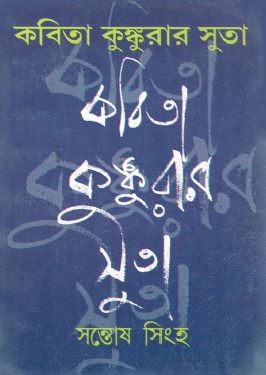 কবিতা কুঙ্কুরার সুতা
কবিতা
কুঙ্কুরার
সুতা
সন্তোষ সিংহ